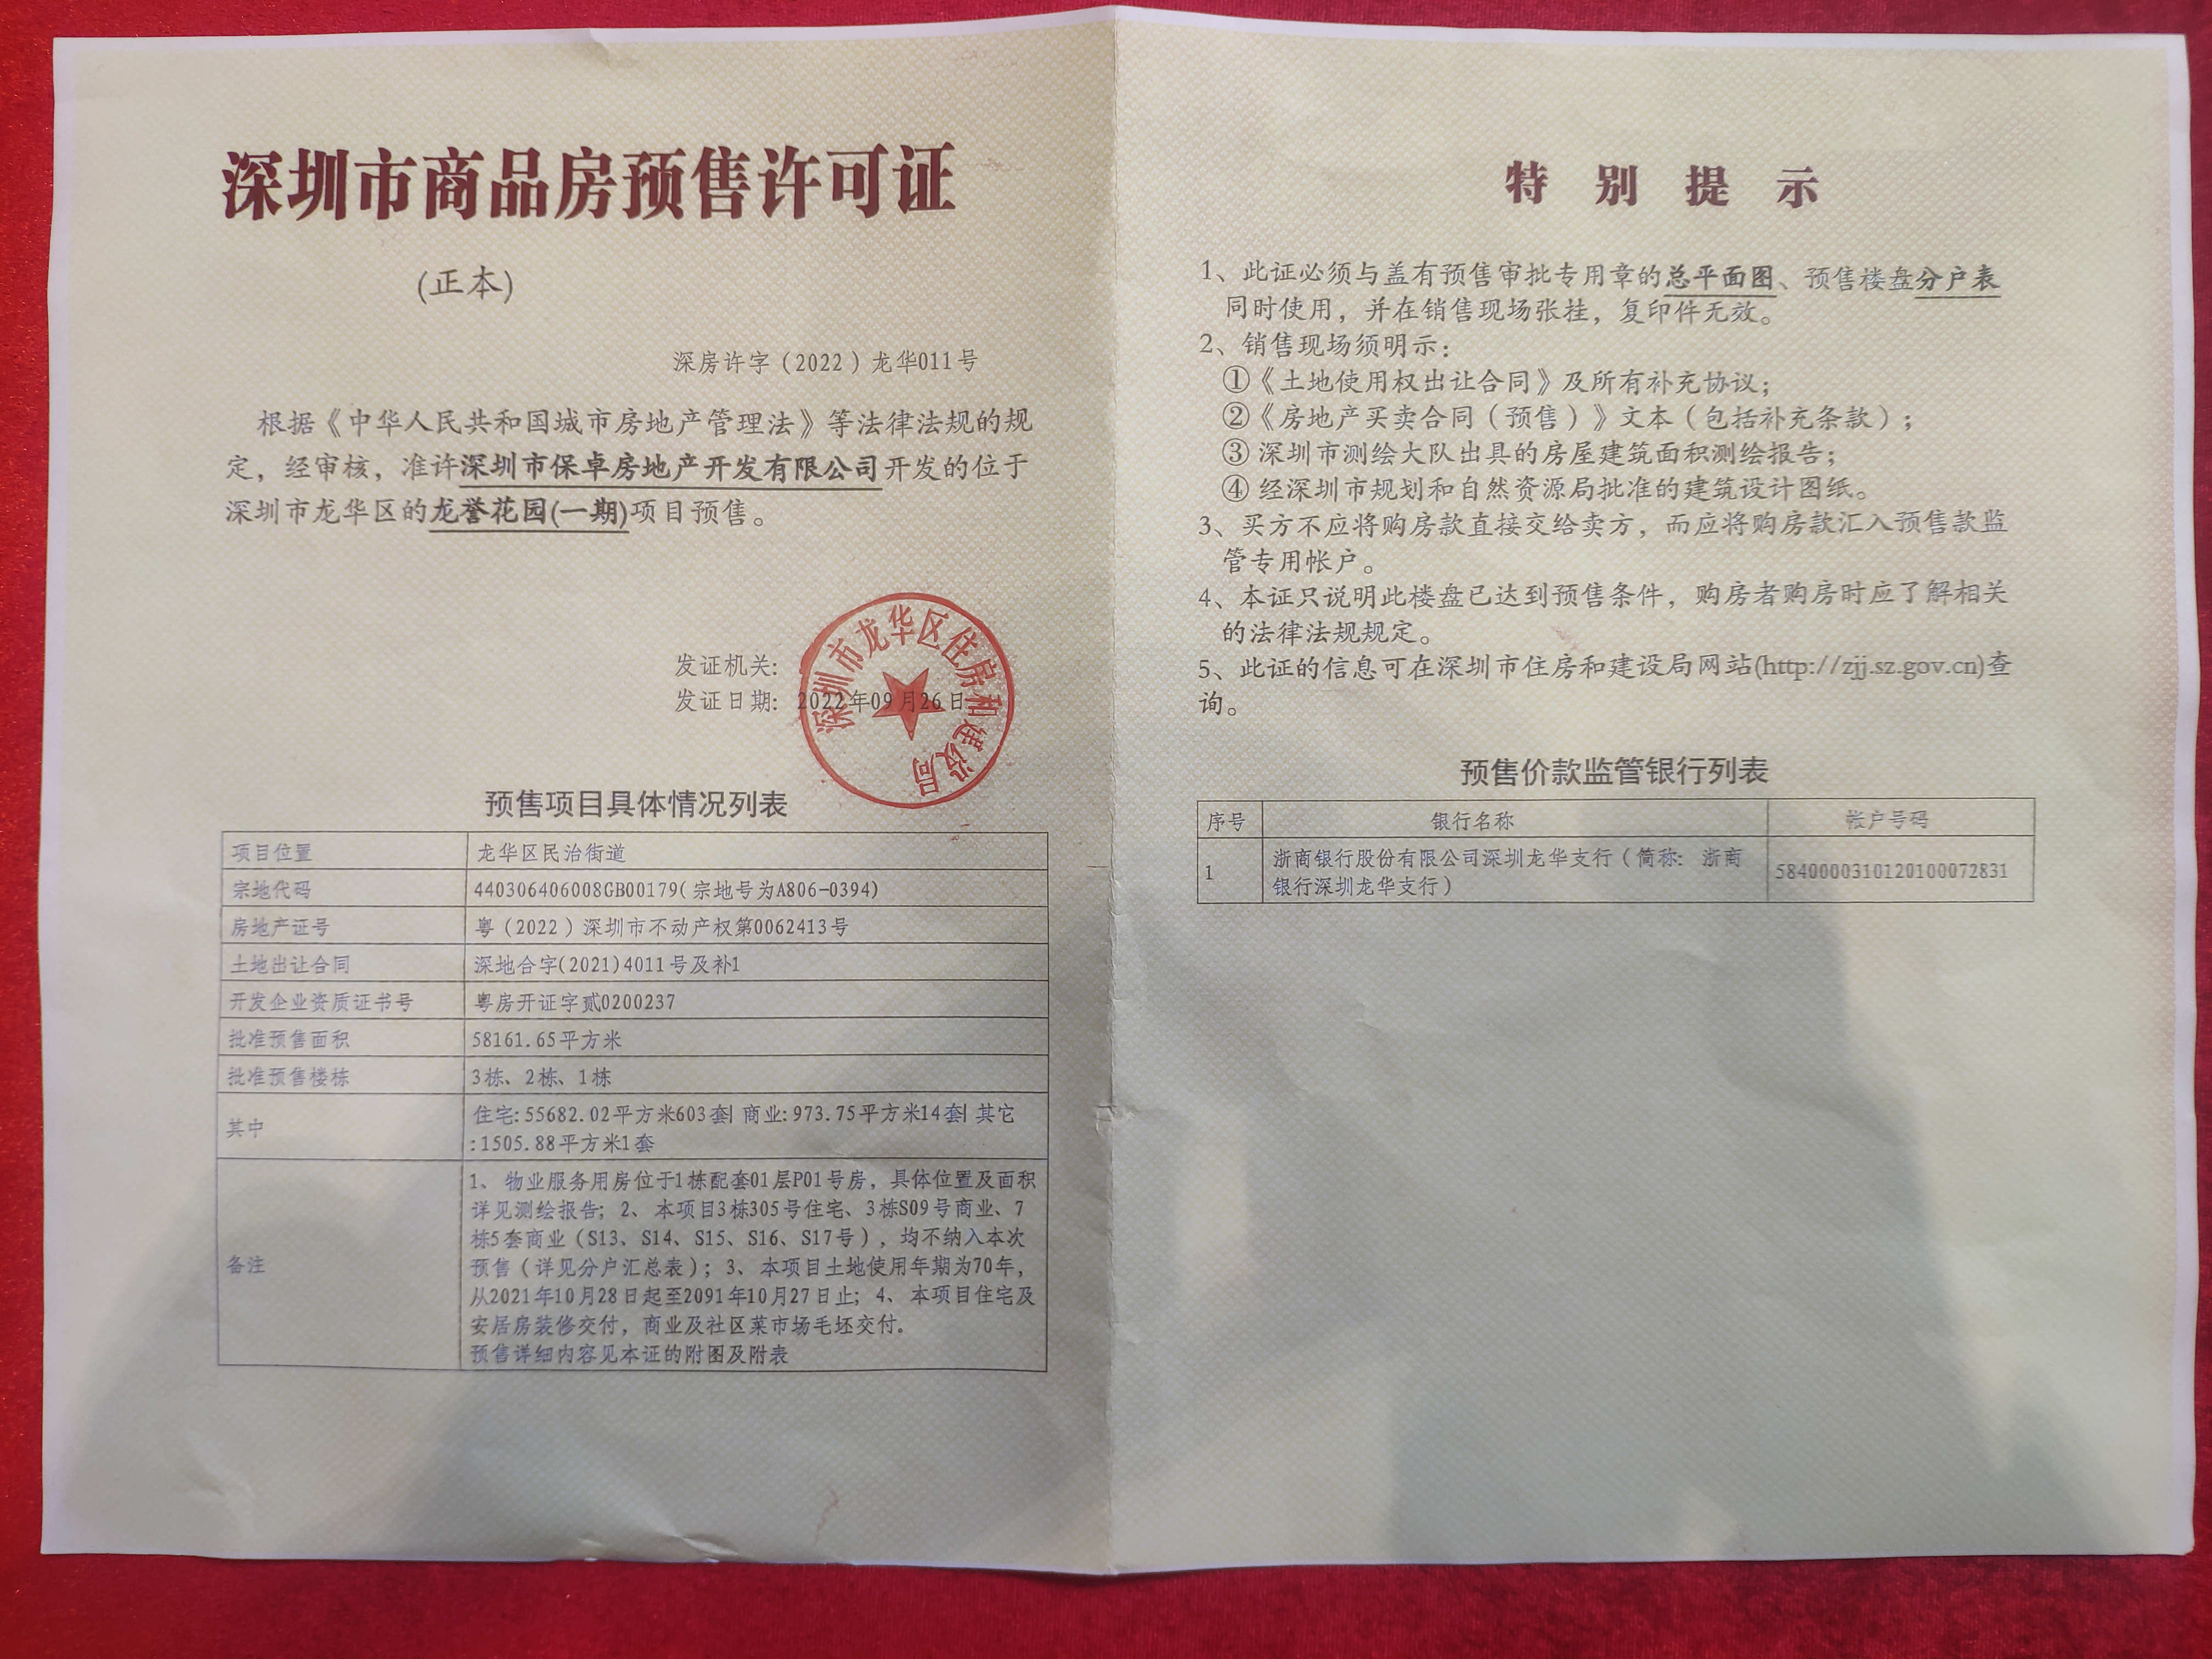 深圳市商品房预售许可证
(正本)
深房许字（2022）龙华011号
根据《中华人民共和国城市房地产管理法》等法律法规的规
定，经审核，准许深圳市保卓房地产开发有限公司开发的位于
深圳市龙华区的龙誉花园(一期)项目预售。
发证机关：
发证日期：2022年09月26日
深圳市龙华区住房和建设局
预售项目具体情况列表
项目位置 龙华区民治街道
宗地代码 440306406008GB00179(宗地号为A806-0394)
房地产证号 粤（2022）深圳市不动产权第0062413号
土地出让合同 深地合字(2021)4011号及补1
开发企业资质证书号 粤房开证字贰0200237
批准预售面积 58161.65平方米
批准预售楼栋 3栋、2栋、1栋
其中 住宅:55682.02平方米603套| 商业:973.75平方米14套| 其它
:1505.88平方米1套
备注 1、物业服务用房位于1栋配套01层P01号房，具体位置及面积
详见测绘报告；2、本项目3栋305号住宅、3栋S09号商业、7
栋5套商业（S13、S14、S15、S16、S17号），均不纳入本次
预售（详见分户汇总表）；3、本项目土地使用年期为70年，
从2021年10月28日起至2091年10月27日止；4、本项目住宅及
安居房装修交付，商业及社区菜市场毛坯交付。
预售详细内容见本证的附图及附表
特别提示
1、此证必须与盖有预售审批专用章的总平面图、预售楼盘分户表
同时使用，并在销售现场张挂，复印件无效。
2、销售现场须明示：
①《土地使用权出让合同》及所有补充协议；
②《房地产买卖合同（预售）》文本（包括补充条款）；
③ 深圳市测绘大队出具的房屋建筑面积测绘报告；
④ 经深圳市规划和自然资源局批准的建筑设计图纸。
3、买方不应将购房款直接交给卖方，而应将购房款汇入预售款监
管专用帐户。
4、本证只说明此楼盘已达到预售条件，购房者购房时应了解相关
的法律法规规定。
5、此证的信息可在深圳市住房和建设局网站(http://zjj.sz.gov.cn)查
询。
预售价款监管银行列表
序号 银行名称 帐户号码
1 浙商银行股份有限公司深圳龙华支行（简称：浙商 5840000310120100072831
银行深圳龙华支行）